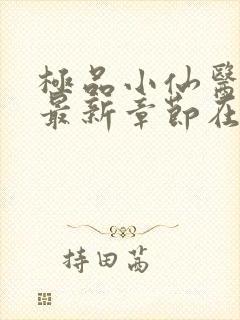 極品小仙醫
最新章節在
持田茜